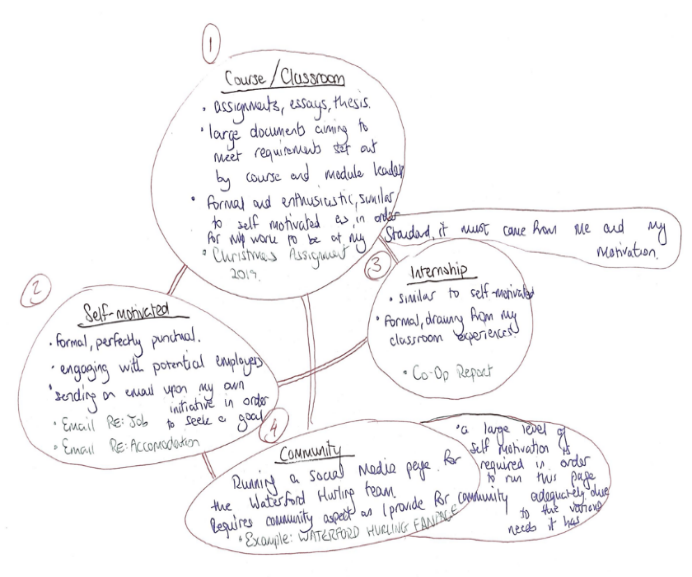 1
Course/Classroom
• assignments, essays, thesis.
• large documents aiming to
meet requirements set out
by course and module leader
• Formal and enthusiastic, similar
to self motivated as, in order
for my work to be at my
Standard, it must come from me and my
motivation.
• Christmas Assignment
2019.
2
Self-motivated
• Formal, perfectly punctual.
• engaging with potential employers
• sending an email upon my own
initiative in order
to seek a goal
• Email RE: Job
• Email RE: Accomodation
3
Internship
• similar to self-motivated
• Formal, drawing from my
classroom experiences
• Co-Op Report
4
Community
Running a social media page for
the Waterford Hurling team.
Requires community aspect as I provide for community
• Example: WATERFORD HURLING FANPAGE
• a large level of
self motivation is
required in order
to run this page
adequately due
to the various
needs it has